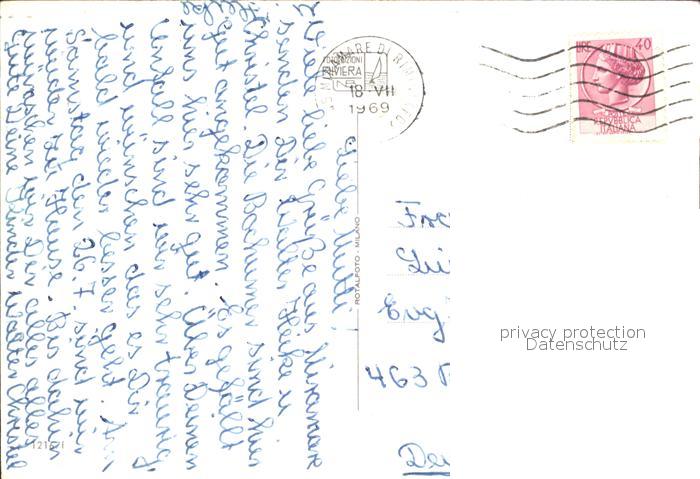 Liebe Mutti!
Viele liebe Grüße aus Miramare
senden Dir Walter, Heike u.
Christel. Die Bochumer sind hier
gut angekommen. Es gefällt
uns hier sehr gut. Über Deinen
Unfall sind wir sehr traurig
und wünschen das es Dir
bald wieder besser geht. Am
Samstag den 26.7. sind wir
wieder zu Hause. Bis dahin
wünschen wir Dir alles alles
gute Deine Kinder Walter Christel
Heike
MARE DI RIMINI
RIVIERA
18-VII
1969
LIRE 40
REPVBBLICA
ITALIANA
ROTALFOTO - MILANO
Fra
Lui
Evg
463 B
Deu
privacy protection
Datenschutz